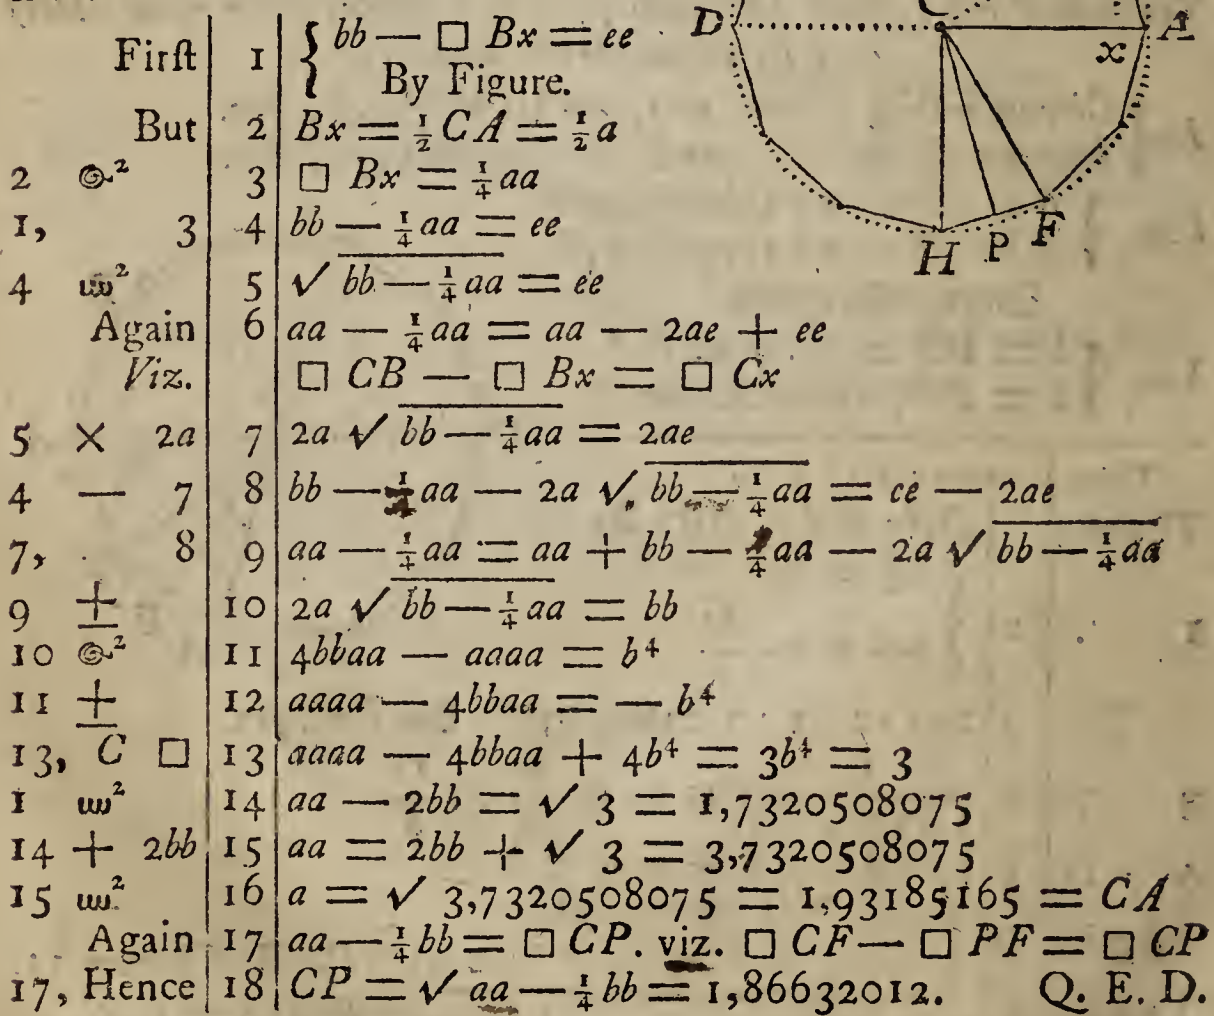 D C A
x
Firſt | 1 | { bb — □ Bx = ee
By Figure.
But | 2 | Bx = ½ CA = ½ a
2 ²| 3 | □ Bx = ¼ aa
1, 3 | 4 | bb — ¼ aa = ee
4 ² | 5 | √ bb — ¼ aa = ee
Again | 6 | aa — ¼ aa = aa — 2ae + ee
Viz. | | □ CB — □ Bx = □ Cx
5 × 2a | 7 | 2a √ bb — ¼ aa = 2ae
4 — 7 | 8 | bb — ¼ aa — 2a √ bb — ¼ aa = ee — 2ae
7, 8 | 9 | aa — ¼ aa = aa + bb — ¼ aa — 2a √ bb — ¼ aa
9 ± | 10 | 2a √ bb — ¼ aa = bb
10 ² | 11 | 4bbaa — aaaa = b⁴
11 ± | 12 | aaaa — 4bbaa = — b⁴
13, C □ | 13 | aaaa — 4bbaa + 4b⁴ = 3b⁴ = 3
1 ² | 14 | aa — 2bb = √ 3 = 1,7320508075
14 + 2bb | 15 | aa = 2bb + √ 3 = 3,7320508075
15 ² | 16 | a = √ 3,7320508075 = 1,93185165 = CA
Again | 17 | aa — ¼ bb = □ CP. viz. □ CF — □ PF = □ CP
17, Hence | 18 | CP = √ aa — ¼ bb = 1,86632012. Q. E. D.
H P F